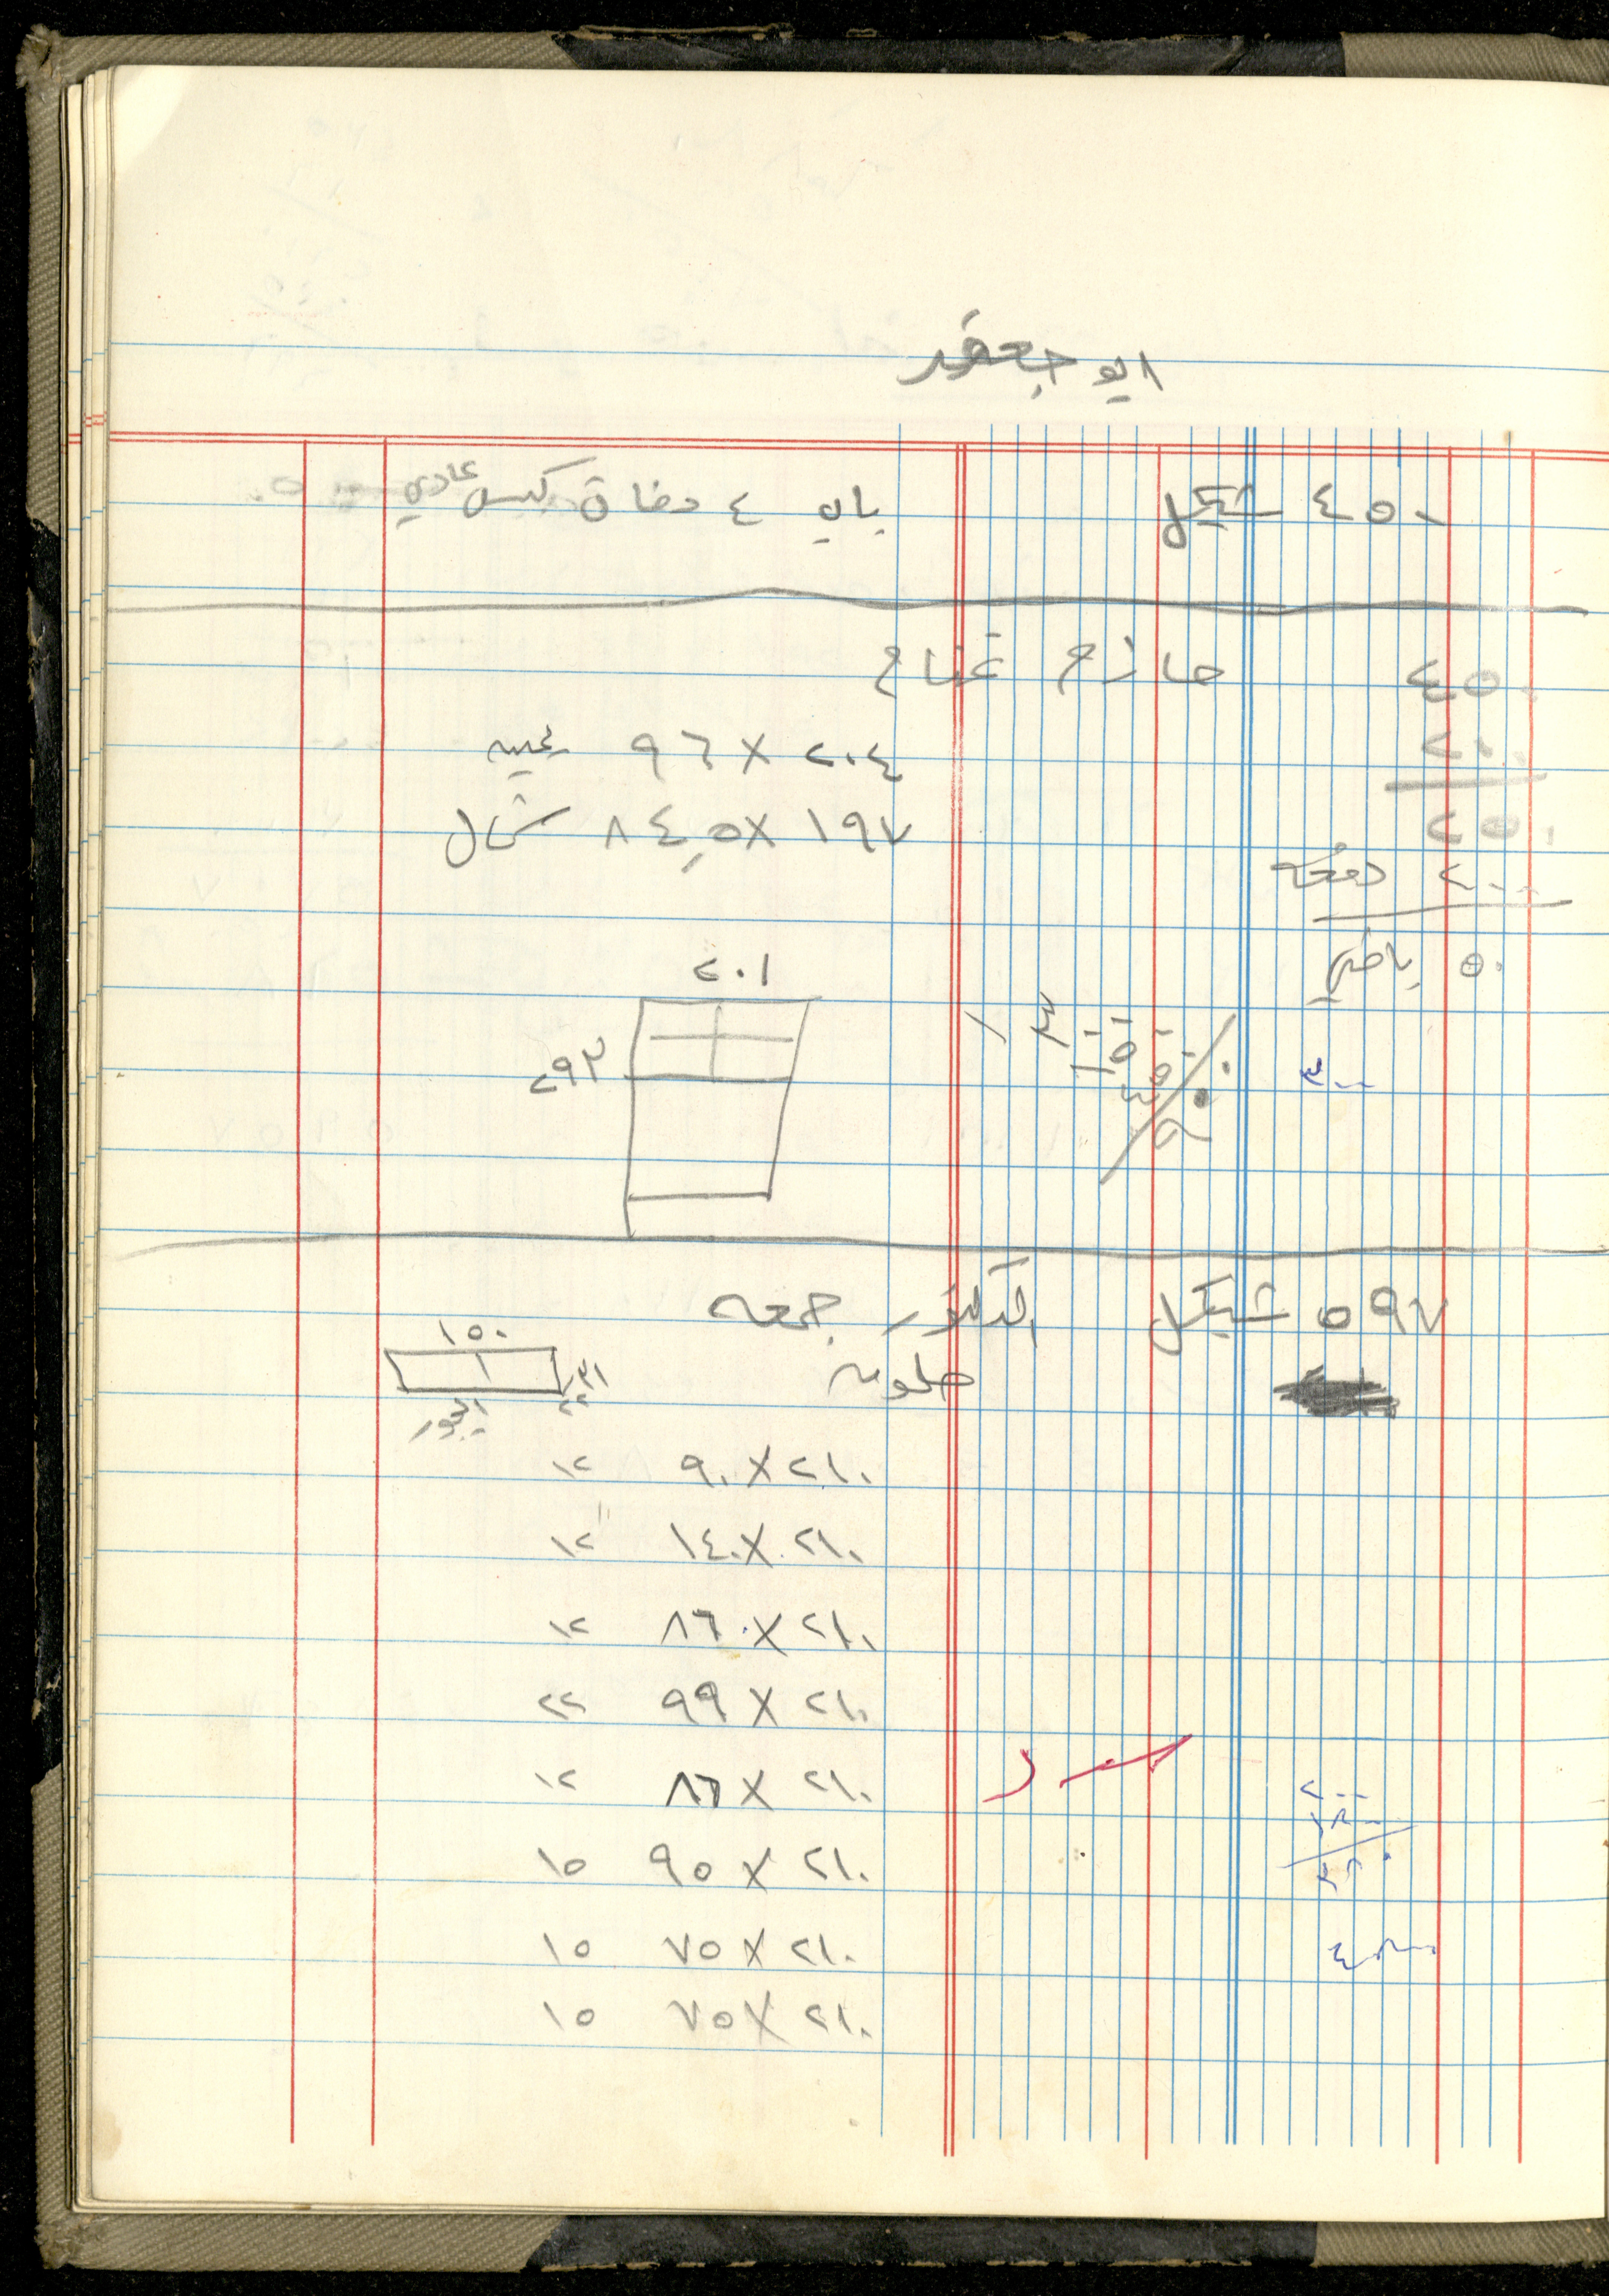 ابو جعفر
٤٥٠ شيكل باب ٤ دفات كبس عادي
حازم غناح
٤٥٠
٢٠٠
٢٥٠
٢٠٠ دفعه
٥٠ باقي
٢٠٤ × ٩٦ يمين
١٩٧ × ٨٤,٥ شمال
٢٠١
٢٩٣
٣٠٠
٥٩٧ شيكل الدكتور جمعه
١٥٠
٢١٠ × ٩٠ ١٢
٢١٠ × ١٤٠ ١٢
٢١٠ × ٨٦ ١٢
٢١٠ × ٩٩ ٢٢
٢١٠ × ٨٦ ١٢
٢١٠ × ٩٥ ١٥
٢١٠ × ٧٥ ١٥
٢١٠ × ٧٥ ١٥
٢٠٠